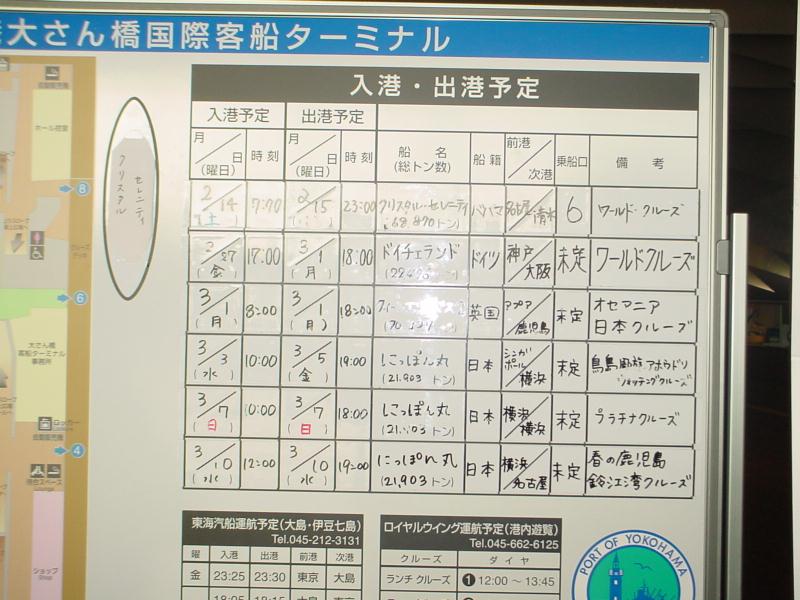 大さん橋国際客船ターミナル
入港・出港予定
入港予定 出港予定
月 日 (曜日) 時刻 月 日 (曜日) 時刻 船名 (総トン数) 船籍 前港 次港 乗船口 備考
2/14 (土) 2/15 23:00 クリスタル・セレニティ 68,870トン) バハマ 名古屋 清水 6 ワールド・クルーズ
2/27 (金) 17:00 3/1 (月) 18:00 ドイチェランド トン) ドイツ 神戸 大阪 未定 ワールドクルーズ
3/1 (月) 8:00 3/1 (月) 18:00 英国 アプア 鹿児島 未定 オセアニア 日本クルーズ
3/3 (水) 10:00 3/5 (金) 19:00 にっぽん丸 (21,903トン) 日本 シンガポール 横浜 未定 鳥島 アホウドリ クルーズ
3/7 (日) 10:00 3/7 (日) 18:00 にっぽん丸 トン) 日本 横浜 横浜 未定 プラチナクルーズ
3/10 (水) 12:00 3/10 (水) 19:00 にっぽん丸 (21,903トン) 日本 横浜 名古屋 未定 春の鹿児島 錦江湾クルーズ
クリスタル セレニティ
ホール控室
8
6
大さん橋 客船ターミナル 事務所
ロッカー
4
ショップ
Shop
東海汽船運航予定(大島・伊豆七島)
Tel.045-212-3131
曜 入港 出港 前港 次港
金 23:25 23:30 東京 大島
ロイヤルウイング運航予定(港内遊覧)
Tel.045-662-6125
クルーズ ダイヤ
ランチ クルーズ ❶12:00～13:45
PORT OF YOKOHAMA